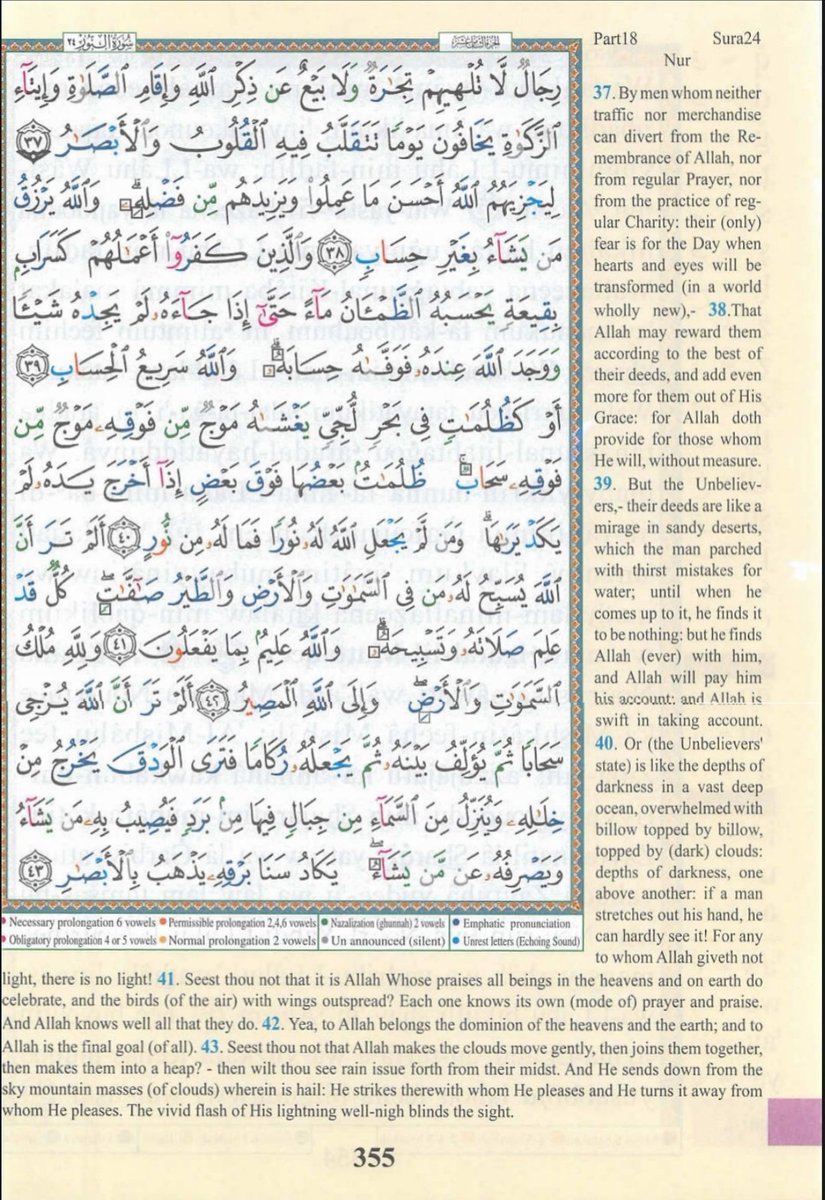 سُورَةُ النُّورِ ٢٤
الجزء الثامن عشر
رِجَالٌ لَّا تُلْهِيهِمْ تِجَٰرَةٌ وَلَا بَيْعٌ عَن ذِكْرِ ٱللَّهِ وَإِقَامِ ٱلصَّلَوٰةِ وَإِيتَآءِ
ٱلزَّكَوٰةِ يَخَافُونَ يَوْمًا تَتَقَلَّبُ فِيهِ ٱلْقُلُوبُ وَٱلْأَبْصَٰرُ ٣٧
لِيَجْزِيَهُمُ ٱللَّهُ أَحْسَنَ مَا عَمِلُوا۟ وَيَزِيدَهُم مِّن فَضْلِهِۦ ۗ وَٱللَّهُ يَرْزُقُ
مَن يَشَآءُ بِغَيْرِ حِسَابٍ ٣٨ وَٱلَّذِينَ كَفَرُوٓا۟ أَعْمَٰلُهُمْ كَسَرَابٍۭ
بِقِيعَةٍ يَحْسَبُهُ ٱلظَّمْـَٔانُ مَآءً حَتَّىٰٓ إِذَا جَآءَهُۥ لَمْ يَجِدْهُ شَيْـًٔا
وَوَجَدَ ٱللَّهَ عِندَهُۥ فَوَفَّىٰهُ حِسَابَهُۥ ۗ وَٱللَّهُ سَرِيعُ ٱلْحِسَابِ ٣٩
أَوْ كَظُلُمَٰتٍ فِى بَحْرٍ لُّجِّىٍّ يَغْشَىٰهُ مَوْجٌ مِّن فَوْقِهِۦ مَوْجٌ مِّن
فَوْقِهِۦ سَحَابٌ ۚ ظُلُمَٰتٌۢ بَعْضُهَا فَوْقَ بَعْضٍ إِذَآ أَخْرَجَ يَدَهُۥ لَمْ
يَكَدْ يَرَىٰهَا ۗ وَمَن لَّمْ يَجْعَلِ ٱللَّهُ لَهُۥ نُورًا فَمَا لَهُۥ مِن نُّورٍ ٤٠ أَلَمْ تَرَ أَنَّ
ٱللَّهَ يُسَبِّحُ لَهُۥ مَن فِى ٱلسَّمَٰوَٰتِ وَٱلْأَرْضِ وَٱلطَّيْرُ صَٰٓفَّٰتٍ ۖ كُلٌّ قَدْ
عَلِمَ صَلَاتَهُۥ وَتَسْبِيحَهُۥ ۗ وَٱللَّهُ عَلِيمٌۢ بِمَا يَفْعَلُونَ ٤١ وَلِلَّهِ مُلْكُ
ٱلسَّمَٰوَٰتِ وَٱلْأَرْضِ ۖ وَإِلَى ٱللَّهِ ٱلْمَصِيرُ ٤٢ أَلَمْ تَرَ أَنَّ ٱللَّهَ يُزْجِى
سَحَابًا ثُمَّ يُؤَلِّفُ بَيْنَهُۥ ثُمَّ يَجْعَلُهُۥ رُكَامًا فَتَرَى ٱلْوَدْقَ يَخْرُجُ مِنْ
خِلَٰلِهِۦ وَيُنَزِّلُ مِنَ ٱلسَّمَآءِ مِن جِبَالٍ فِيهَا مِنۢ بَرَدٍ فَيُصِيبُ بِهِۦ مَن يَشَآءُ
وَيَصْرِفُهُۥ عَن مَّن يَشَآءُ ۖ يَكَادُ سَنَا بَرْقِهِۦ يَذْهَبُ بِٱلْأَبْصَٰرِ ٤٣
Necessary prolongation 6 vowels Permissible prolongation 2,4,6 vowels Nazalization (ghunnah) 2 vowels Emphatic pronunciation
Obligatory prolongation 4 or 5 vowels Normal prolongation 2 vowels Un announced (silent) Unrest letters (Echoing Sound)
Part18 Sura24
Nur
37. By men whom neither
traffic nor merchandise
can divert from the Re-
membrance of Allah, nor
from regular Prayer, nor
from the practice of reg-
ular Charity: their (only)
fear is for the Day when
hearts and eyes will be
transformed (in a world
wholly new),- 38.That
Allah may reward them
according to the best of
their deeds, and add even
more for them out of His
Grace: for Allah doth
provide for those whom
He will, without measure.
39. But the Unbeliev-
ers,- their deeds are like a
mirage in sandy deserts,
which the man parched
with thirst mistakes for
water; until when he
comes up to it, he finds it
to be nothing: but he finds
Allah (ever) with him,
and Allah will pay him
his account: and Allah is
swift in taking account.
40. Or (the Unbelievers'
state) is like the depths of
darkness in a vast deep
ocean, overwhelmed with
billow topped by billow,
topped by (dark) clouds:
depths of darkness, one
above another: if a man
stretches out his hand, he
can hardly see it! For any
to whom Allah giveth not
light, there is no light! 41. Seest thou not that it is Allah Whose praises all beings in the heavens and on earth do
celebrate, and the birds (of the air) with wings outspread? Each one knows its own (mode of) prayer and praise.
And Allah knows well all that they do. 42. Yea, to Allah belongs the dominion of the heavens and the earth; and to
Allah is the final goal (of all). 43. Seest thou not that Allah makes the clouds move gently, then joins them together,
then makes them into a heap? - then wilt thou see rain issue forth from their midst. And He sends down from the
sky mountain masses (of clouds) wherein is hail: He strikes therewith whom He pleases and He turns it away from
whom He pleases. The vivid flash of His lightning well-nigh blinds the sight.
355